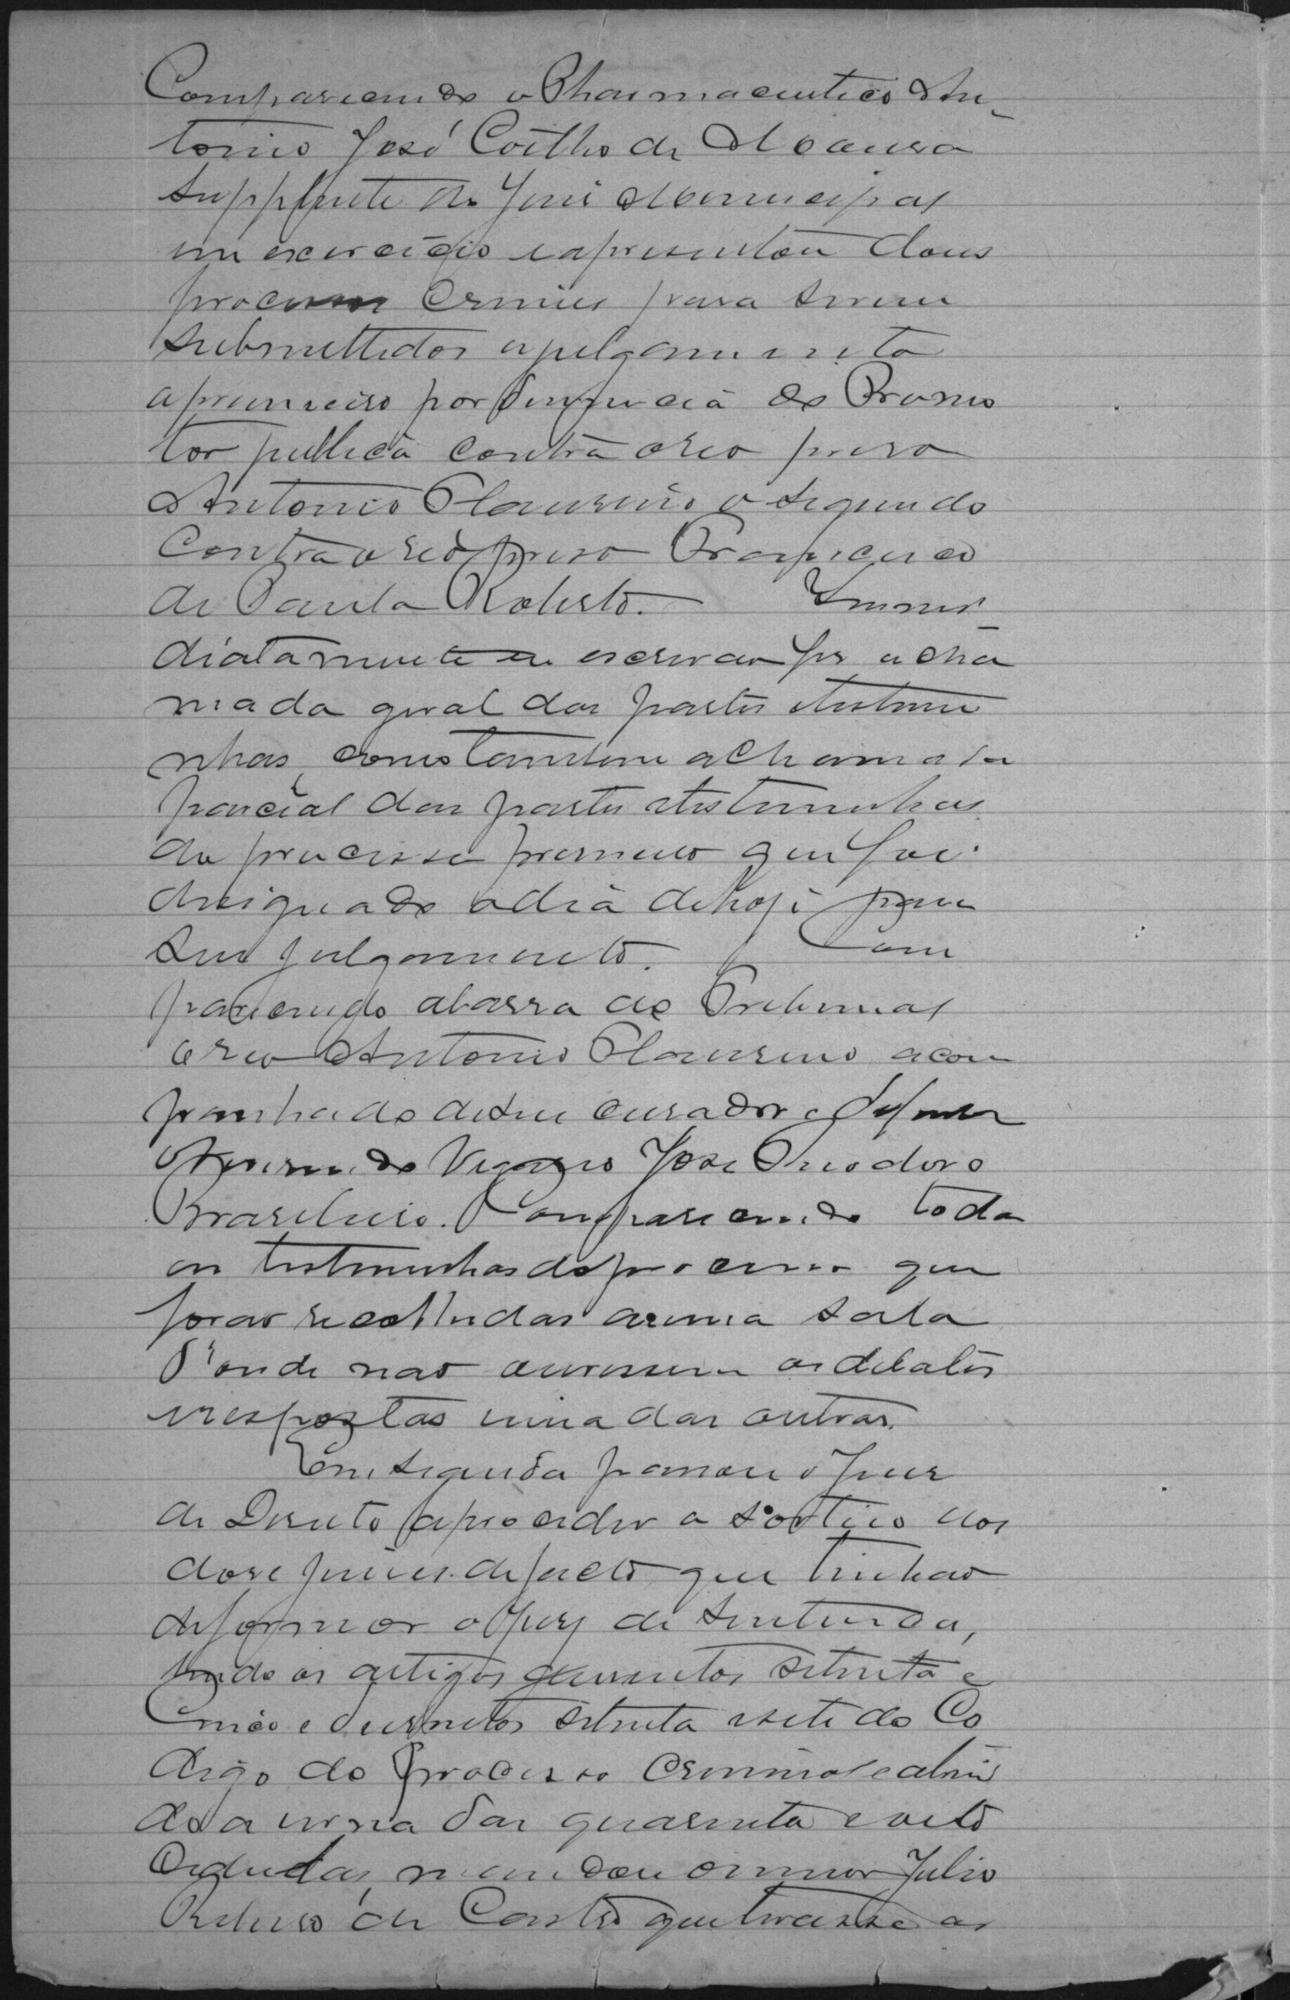 Comparecendo o Pharmaceutico An-
tonio José Coelho de Moura
Supplente de Juis Municipal
em exercicio e apresentou dous
processos crimes para serem
submettidos a julgamento
o primeiro por denuncia do Promo
tor publico contra o reo preso
Antonio Flauzino o segundo
contra o reo preso Francisco
de Paula Roberto. Imme-
diatamente o escrivão fez a cha
mada geral das partes e testemu
nhas, como tambem a chamada
parcial das partes e testemunhas
do processo primeiro que foi
designado o dia de hoje para
seu julgamento. Com
parecendo a barra do Tribunal
o reo Antonio Flauzino acom
panhado de seu curador e defensor
Reverendo Vigario José Theodoro
Brasileiro. Comparecendo todas
as testemunhas do processo que
forão recolhidas a uma sala
d'onde não ouvissem os debates
e respostas umas das outras.
Em seguida passou o Juiz
de Direito a proceder a sorteio dos
doze juizes de facto que tinhão
de formar o Jury de Sentença,
lendo os artigos duzentos setenta e
cinco e duzentos setenta e sete do Co
digo do processo criminal e abrin
do a urna das quarenta e oito
cedulas, mandou o menor Julio
de Castro que tirasse as